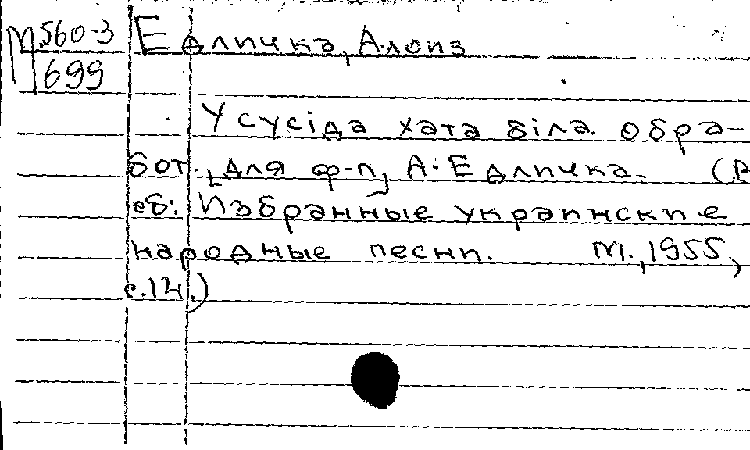 М 560-3
699
Едличка, Алоиз
У сусіда хата біла. Обра-
бот. [для ф-п] А. Едличка. (В
сб: Избранные украинские
народные песни. М., 1955,
с.14.)